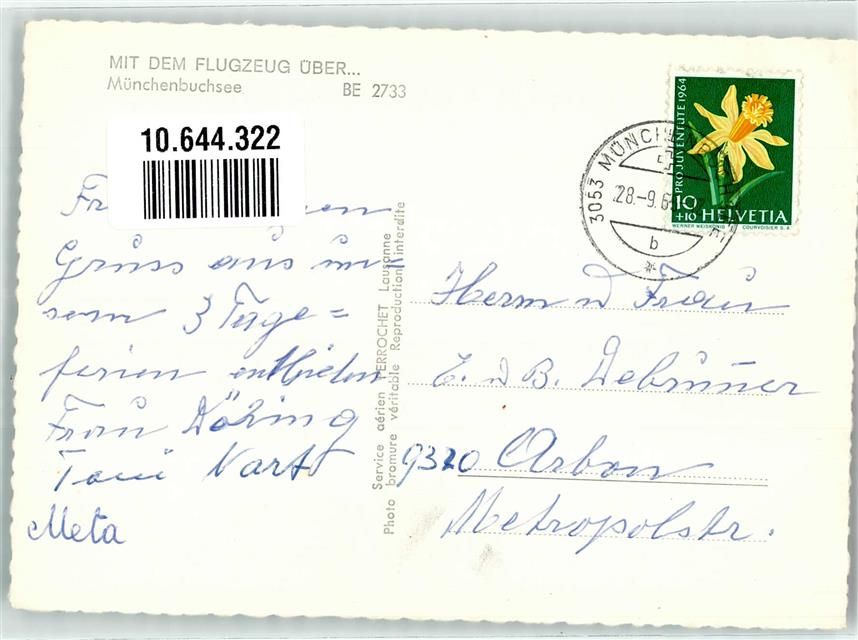 MIT DEM FLUGZEUG ÜBER...
Münchenbuchsee BE 2733
10.644.322
Gruss aus un-
sern 3 Tage=
ferien entbieten
Frau Döring
Toni
Meta
Service aérien PERROCHET Lausanne
Photo bromure véritable Reproduction interdite
3053 MÜNCHENB
28.-9.6
b
PRO JUVENTUTE 1964
10
+10 HELVETIA
WERNER WEISKÖNIG COURVOISIER S.A.
Herrn u Frau
E. u B. Debrunner
9320 Arbon
Metropolstr.